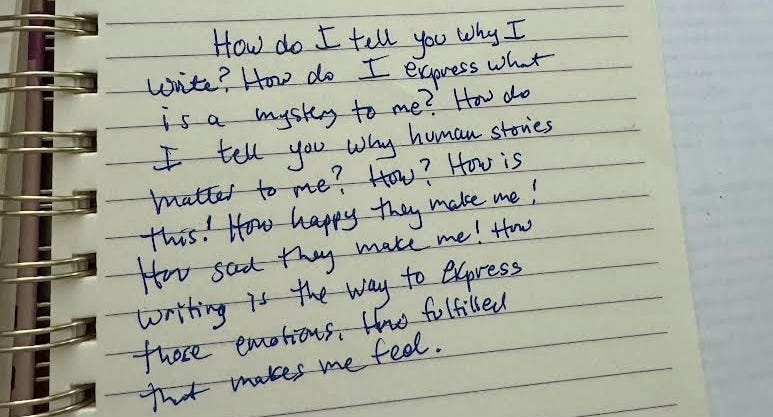 How do I tell you why I
write? How do I express what
is a mystery to me? How do
I tell you why human stories
matter to me? How? How is
this! How happy they make me!
How sad they make me! How
writing is the way to express
those emotions. How fulfilled
that makes me feel.